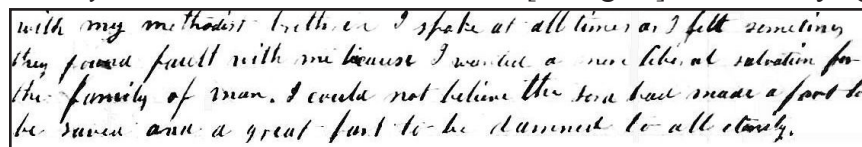 with my methodist brethren I spoke at all times as I felt sometimes
they found fault with me because I wanted a more liberal salvation for
the family of man. I could not believe the Lord had made a part to
be saved and a great part to be damned to all eternity.